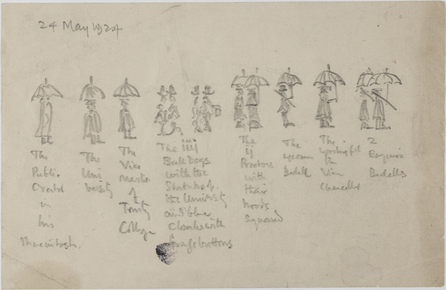 24 May 1924
The
Public
Orator
in
his
Macintosh.
The
Uni
versity
The
Vice
Master
of
Trinity
College
The
Bull Dogs
with the
Statutes of
the University
and blue
Cloaks with
buttons
The
Proctors
with
their
hoods
squared
The
Bedell
The
Vice
Chancellor
2
Esquire
Bedells